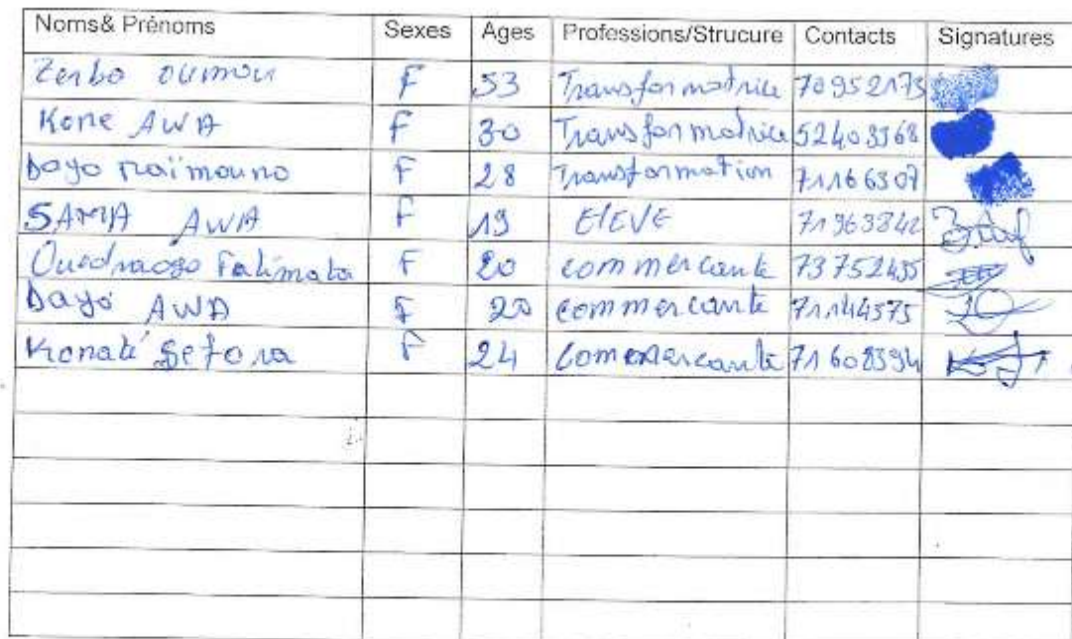 Noms& Prénoms Sexes Ages Professions/Strucure Contacts Signatures
Zerbo oumou F 53 Transformatrice 70952175
Kone AWA F 30 Transformatrice 52403368
Dayo maïmouno F 28 Transformation 71166307
SAMA AWA F 19 ELEVE 71963842
Ouedraogo Fatimata F 20 commercante 73752435
Dayo AWA F 20 commercante 71144575
Konaté Setora F 24 Commercante 71608394